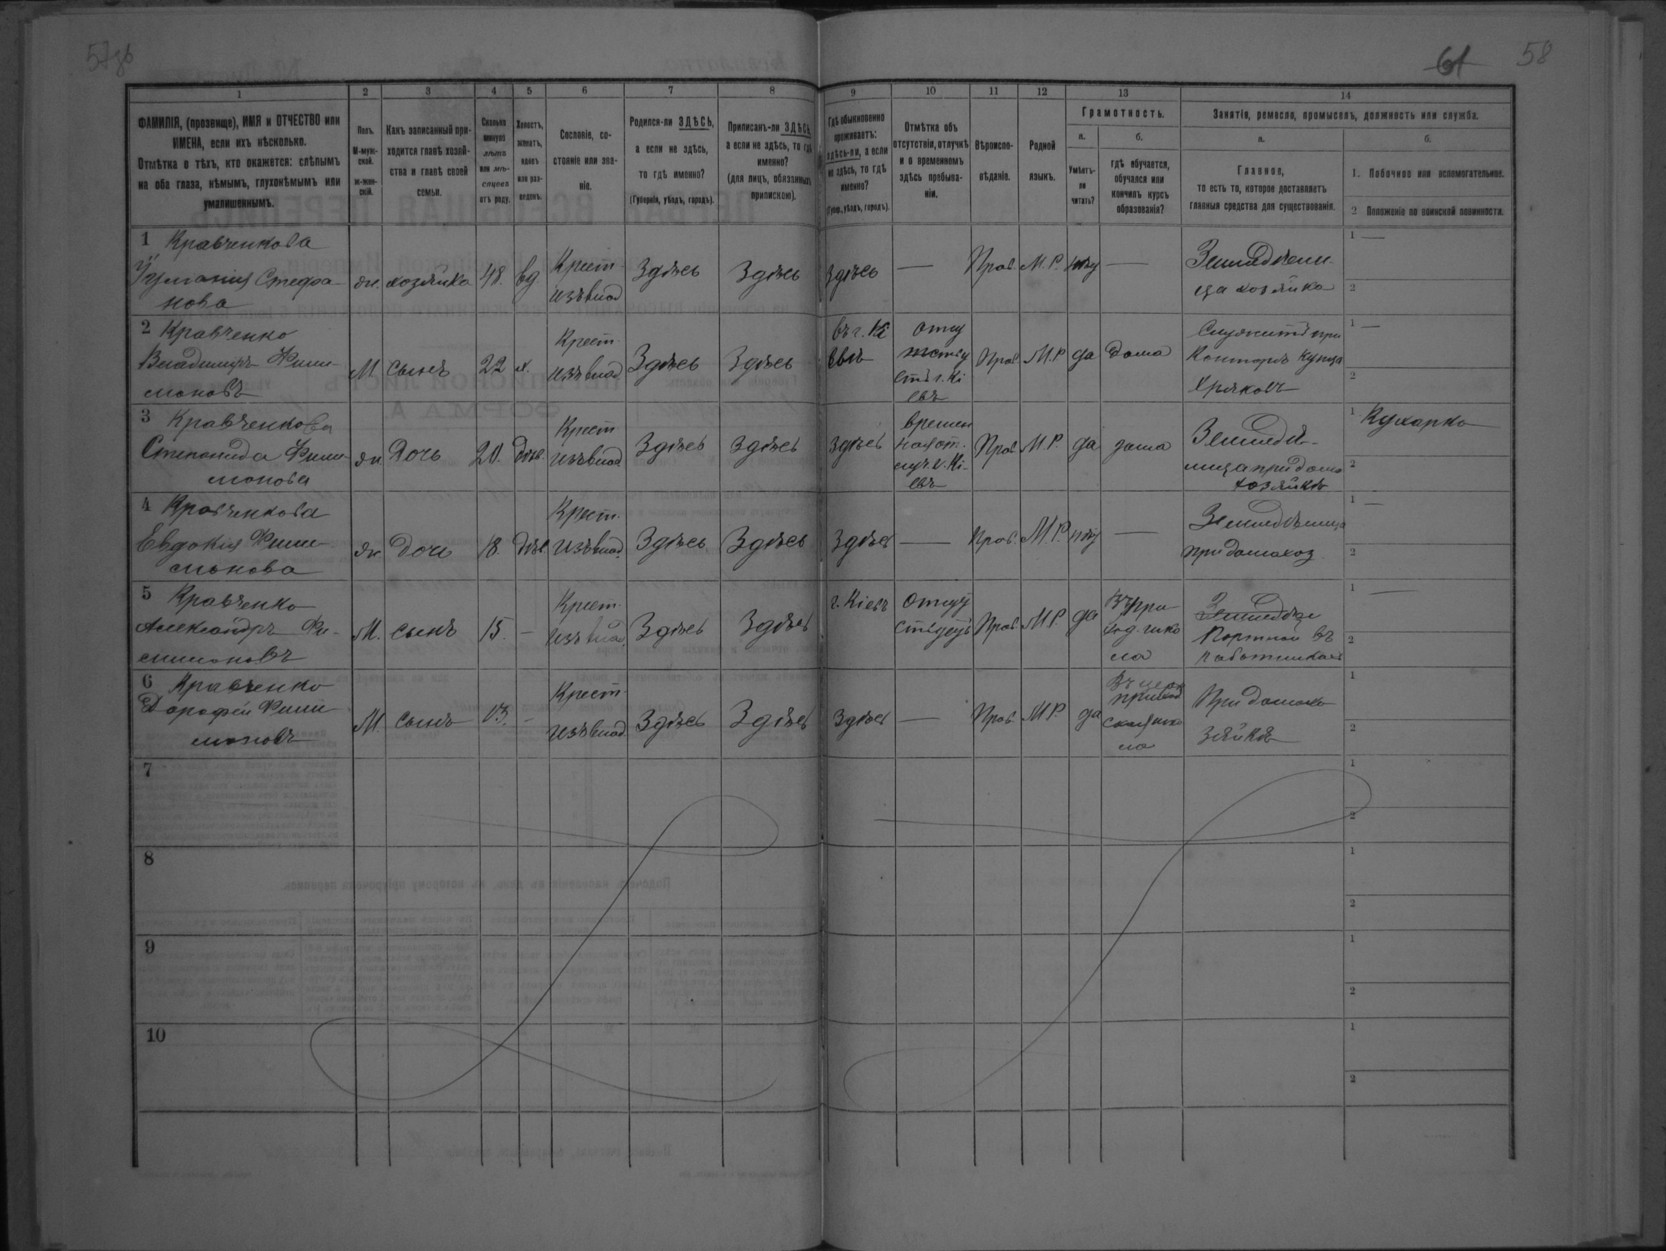 57об
61 58
1 2 3 4 5 6 7 8 9 10 11 12 13 14
ФАМИЛІЯ, (прозвище), ИМЯ и ОТЧЕСТВО или
ИМЕНА, если ихъ нѣсколько.
Отмѣтка о тѣхъ, кто окажется: слѣпымъ
на оба глаза, нѣмымъ, глухонѣмымъ или
умалишеннымъ.
Полъ.
М-муж-
ской.
ж-жен-
скій.
Какъ записанный при-
ходится главѣ хозяй-
ства и главѣ своей
семьи.
Сколько
минуло
лѣтъ
или мѣ-
сяцевъ
отъ роду.
Холостъ,
женатъ,
вдовъ
или раз-
веденъ.
Сословіе, со-
стояніе или зва-
ніе.
Родился-ли ЗДѢСЬ,
а если не здѣсь,
то гдѣ именно?
(Губернія, уѣздъ, городъ).
Приписанъ-ли ЗДѢСЬ,
а если не здѣсь, то гдѣ
именно?
(для лицъ, обязанныхъ
припискою).
Гдѣ обыкновенно
проживаетъ:
здѣсь-ли, а если
не здѣсь, то гдѣ
именно?
(Губер., уѣздъ, городъ).
Отмѣтка объ
отсутствіи, отлучкѣ
и о временномъ
здѣсь пребыва-
ніи.
Вѣроиспо-
вѣданіе.
Родной
языкъ.
Грамотность.
а.
Умѣетъ-
ли
читать?
б.
гдѣ обучается,
обучался или
кончилъ курсъ
образованія?
Занятіе, ремесло, промыселъ, должность или служба.
а.
Главное,
то есть то, которое доставляетъ
главныя средства для существованія.
б.
1. Побочное или вспомогательное.
2 Положеніе по воинской повинности.
1 Кравченкова
Іуліанія Стефа-
нова
жн. хозяйка 48. вд Крест
изъ влад Здѣсь Здѣсь Здѣсь — Прав М.Р. нѣту —
ца хозяйка
1 —
2
2 Кравченко
Владиміръ Фили-
моновъ
М сынъ 22 х. Крест
изъ влад Здѣсь Здѣсь
въ г. Кі
евѣ
Прав М.Р да дома
Служитъ при
Конторѣ купца
1 —
2
3 Кравченкова
Степанида Фили
монова
жн Дочь 20. Крест
изъ влад Здѣсь Здѣсь Здѣсь
времен
Прав М.Р. да дома
Землѣдѣ-
лица при домо
хозяйкѣ
1 Кухарка
2
4 Кравченкова
Евдокія Фили-
монова
жн Дочь 18. Крест.
изъ влад. Здѣсь Здѣсь Здѣсь — Прав. М.Р. нѣту —
Землѣдѣлица
при домохоз.
1 —
2
5 Кравченко
Александръ Фи-
лимоновъ
М. сынъ 15. — Крест.
изъ влад Здѣсь Здѣсь
г. Кіевъ Прав М.Р да
Портной въ
работникахъ
1 —
2
6 Кравченко
Дорофей Фили
моновъ
М. сынъ 13. — Крест.
изъ влад Здѣсь Здѣсь Здѣсь — Прав. М.Р. да
При домохо
зяйкѣ
1
2
7
1
2
8
1
2
9
1
2
10
1
2